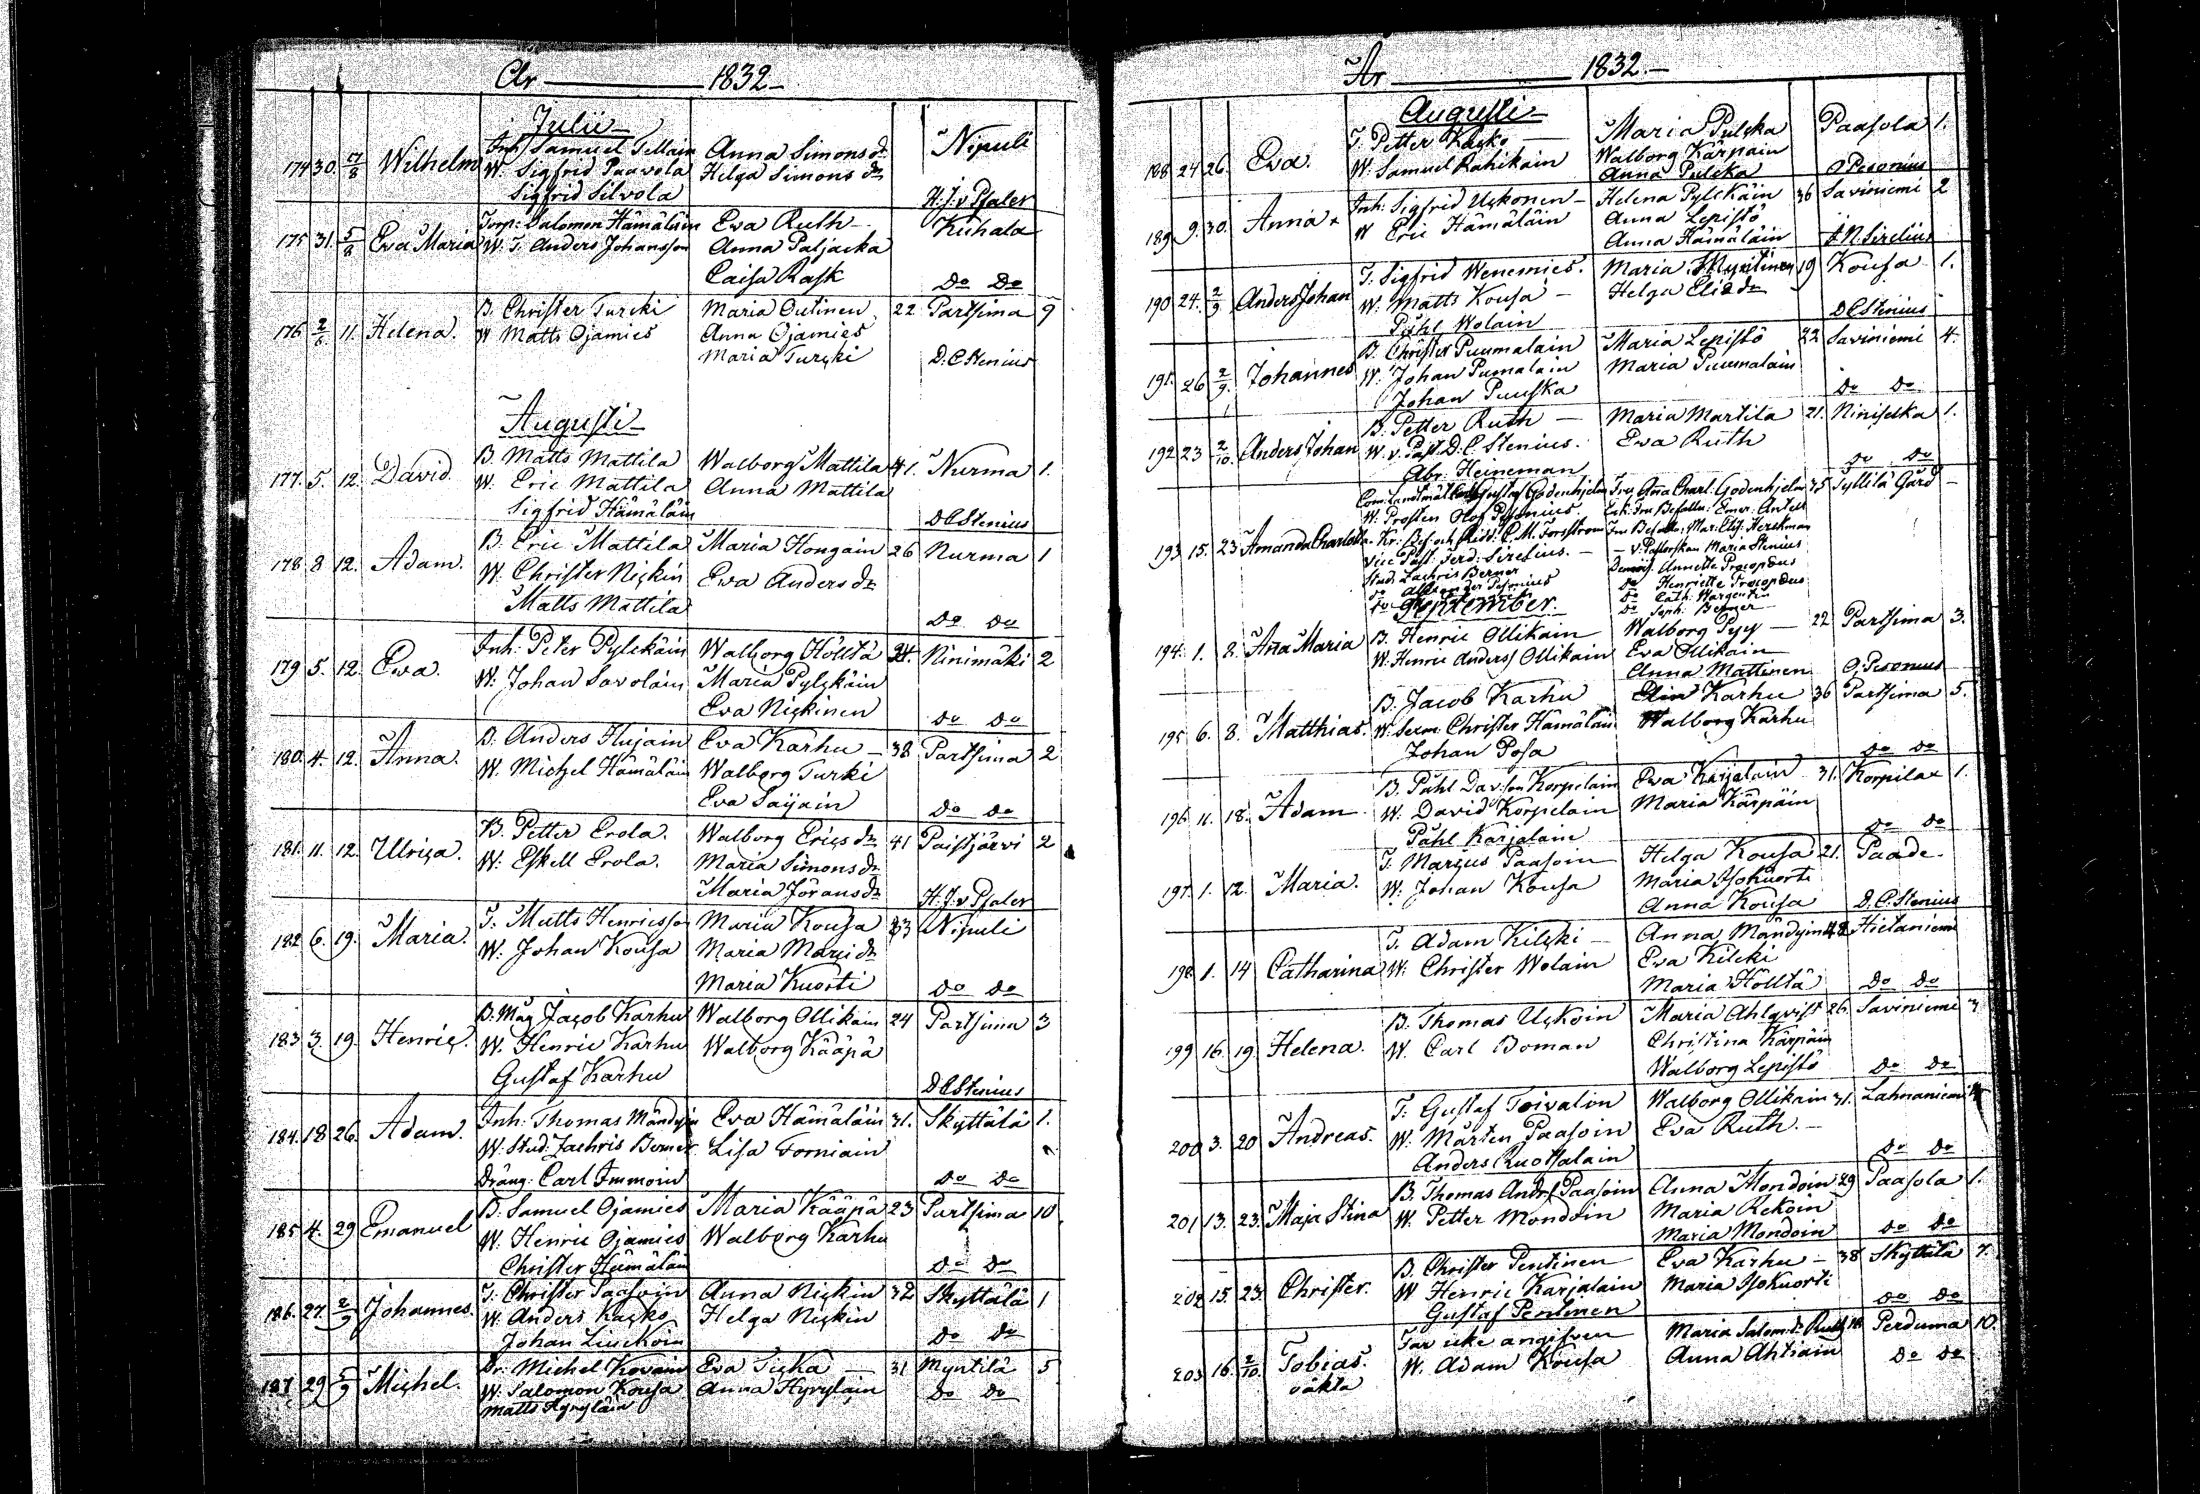 År 1832
Julii
174 30. 5/8 Wilhelm Inh. Samuel Tellain Anna Simons dr Nipuli
W. Sigfrid Paavola Helga Simons dr
Sigfrid Silvola H. J. v Pfaler
175 31. 5/8 Eva Maria Torp. Salomon Hämäläin Eva Ruth Kuhala
W. T. Anders Johansson Anna Paljacka
Caisa Rask Do Do
176 11. Helena. B. Christer Turcki Maria Outinen 22 Partsima 9
W Matts Ojamies Anna Ojamies
Maria Turcki D. C. Stenius
Augusti
177. 5. 12. David. B. Matts Mattila Walborg Mattila 41. Nurma 1.
W. Eric Mattila Anna Mattila
Sigfrid Hämäläin D C Stenius
178. 8 12. Adam. B. Eric Mattila Maria Hongain 26 Nurma 1
W. Christer Nickin Eva Anders dr
Matts Mattila Do Do
179 5. 12. Ewa. Inh. Peter Pylckäin Walborg Hölttä 24. Ninimäki 2
W. Johan Savolain Maria Pylckäin
Eva Nickinen Do Do
180. 4. 12. Anna. B. Anders Hujain Eva Karhu 38 Partsima 2
W. Michel Hämäläin Walborg Turki
Eva Saijain Do Do
181. 11. 12. Ulrica. B. Petter Erola. Walborg Erics dr 41 Paistjärvi 2
W. Eskell Erola. Maria Simons dr
Maria Jörans dr H. J. v Pfaler
182 6. 19. Maria. T. Matts Henricsson Maria Kousa 33 Nipuli
W. Johan Kousa Maria Marci dr
Maria Kuorti Do Do
183 3. 19. Henric. B. Måg Jacob Karhu Walborg Ollikain 24 Partsima 3
W. Henric Karhu Walborg Kääpä
Gustaf Karhu D C Stenius
184. 18 26. Adam. Inh. Thomas Mändyin Eva Hämäläin 31. Skyttälä 1.
W. Stud. Zachris Berner Lisa Forniain
Dräng. Carl Immoin Do Do
185 4. 29 Emanuel B. Samuel Ojamies Maria Kääpä 23 Partsima 10
W. Henric Ojamies Walborg Karhu
Christer Hämäläin Do Do
186. 27. 2/9 Johannes. T. Christer Paasoin Anna Nickin 32 Skyttälä 1
W. Anders Kacko Helga Nickin
Johan Linckoin Do Do
187 29 5/9 Michel. Dr. Michel Kovain Eva Tucka 31 Myntilä 5
W. Salomon Kousa Anna Hyrylain Do Do
Matts Hyryläin
År 1832
Augusti
188 24 26 Eva. T. Petter Kacko Maria Pulcka Paasola 1.
W. Samuel Rahikain Walborg Kärpäin
Anna Pulcka O Pesonius
189 9. 30. Anna Inh: Sigfrid Uckonen Helena Pylckäin 36 Saviniemi 2
W Eric Hämäläin Anna Lepistö
Anna Hämäläin F. N. Sirelius
190 24. 2/9 Anders Johan T. Sigfrid Wenemies. Maria Myntinen 19 Kousa 1.
W. Matts Kousa Helga Elia dr
Påhl Wolain D C Stenius
191. 26 2/9. Johannes B. Christer Puumalain Maria Lepistö 22 Saviniemi 4.
W. Johan Pumalain Maria Puumalain
Johan Puuska Do Do
192 23 2/10. Anders Johan B. Petter Ruth Maria Martila 21. Niniselka 1.
W. v. Past. D. C. Stenius. Eva Ruth
Abr. Heineman Do Do
193 15. 23 Amanda Charlotta Gustaf Godenhjelm Fru Anna Charl. Godenhjelm 35 Tyttilä Gård
W. Prosten Olof Pesonius.
Vice Past. Ferd. Sirelius. v. Pastorskan Maria Stenius
Stud. Zachris Berner Annette Procopæus
Do Alexander Pesonius Do Henriette Procopæus
Do Cath. Wargentin
Do Soph. Berner
September
194. 1. 2. Ana Maria B. Henric Ollikain Walborg Pyy 22 Partsima 3.
W. Henric Anders Ollikain Eva Ollikain
Anna Mattinen O. Pesonius
195 6. 8. Matthias. B. Jacob Karhu Elin Karhu 36 Partsima 5.
W. Sexm. Christer Hämäläin Walborg Karhu
Johan Posa Do Do
196 11. 18. Adam B. Påhl Davson Korpelain Eva Karjalain 31. Korpila 1.
W. David Korpelain Maria Kärpäin
Påhl Karjalain Do Do
197. 1. 12. Maria. T. Marcus Paasoin Helga Kousa 21. Paade.
W. Johan Kousa Maria Isokuorti
Anna Kousa D. C. Stenius
198. 1. 14 Catharina T. Adam Kilcki Anna Mändyin 42 Hietaniemi
W. Christer Wolain Eva Kilcki
Maria Hölttä Do Do
199 16. 19 Helena. B. Thomas Uckoin Maria Ahlqvist 26. Saviniemi 3
W. Carl Boman Christina Kärpäin
Walborg Lepistö Do Do
200 3. 20 Andreas. T. Gustaf Toivalin Walborg Ollikain 31. Lahnaniemi
W. Mårten Paasoin Eva Ruth.
Anders Ruottalain Do Do
201 13. 23. Maja Stina B. Thomas Andrs Paasoin Anna Mondoin 29 Paasola 1.
W. Petter Mondoin Maria Rekoin
Maria Mondoin Do Do
202 15. 23. Christer. B. Christer Pentinen Eva Karhu 38 Skyttälä 7.
W Henric Karjalain Maria Isokuorti
Gustaf Pentinen Do Do
203 16 2/10. Tobias. Far icke angifven Maria Salom. dr Ruth 18 Perduma 10.
oäkta W. Adam Kousa Anna Ahtiain Do Do